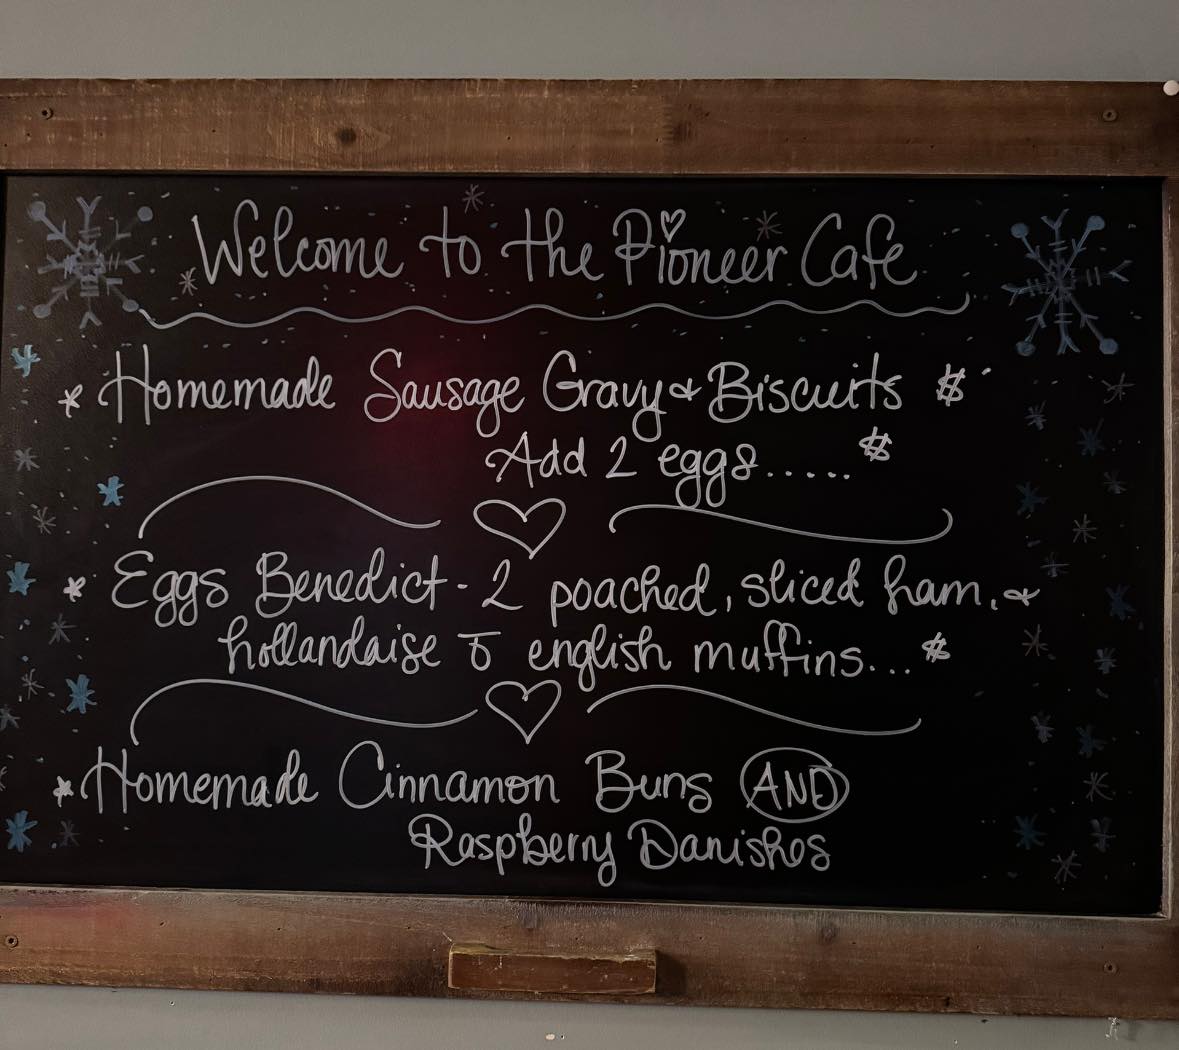 Welcome to the Pioneer Cafe
* Homemade Sausage Gravy & Biscuits $
Add 2 eggs..... $
* Eggs Benedict - 2 poached, sliced ham, &
hollandaise c̄ english muffins... $
* Homemade Cinnamon Buns AND
Raspberry Danishes